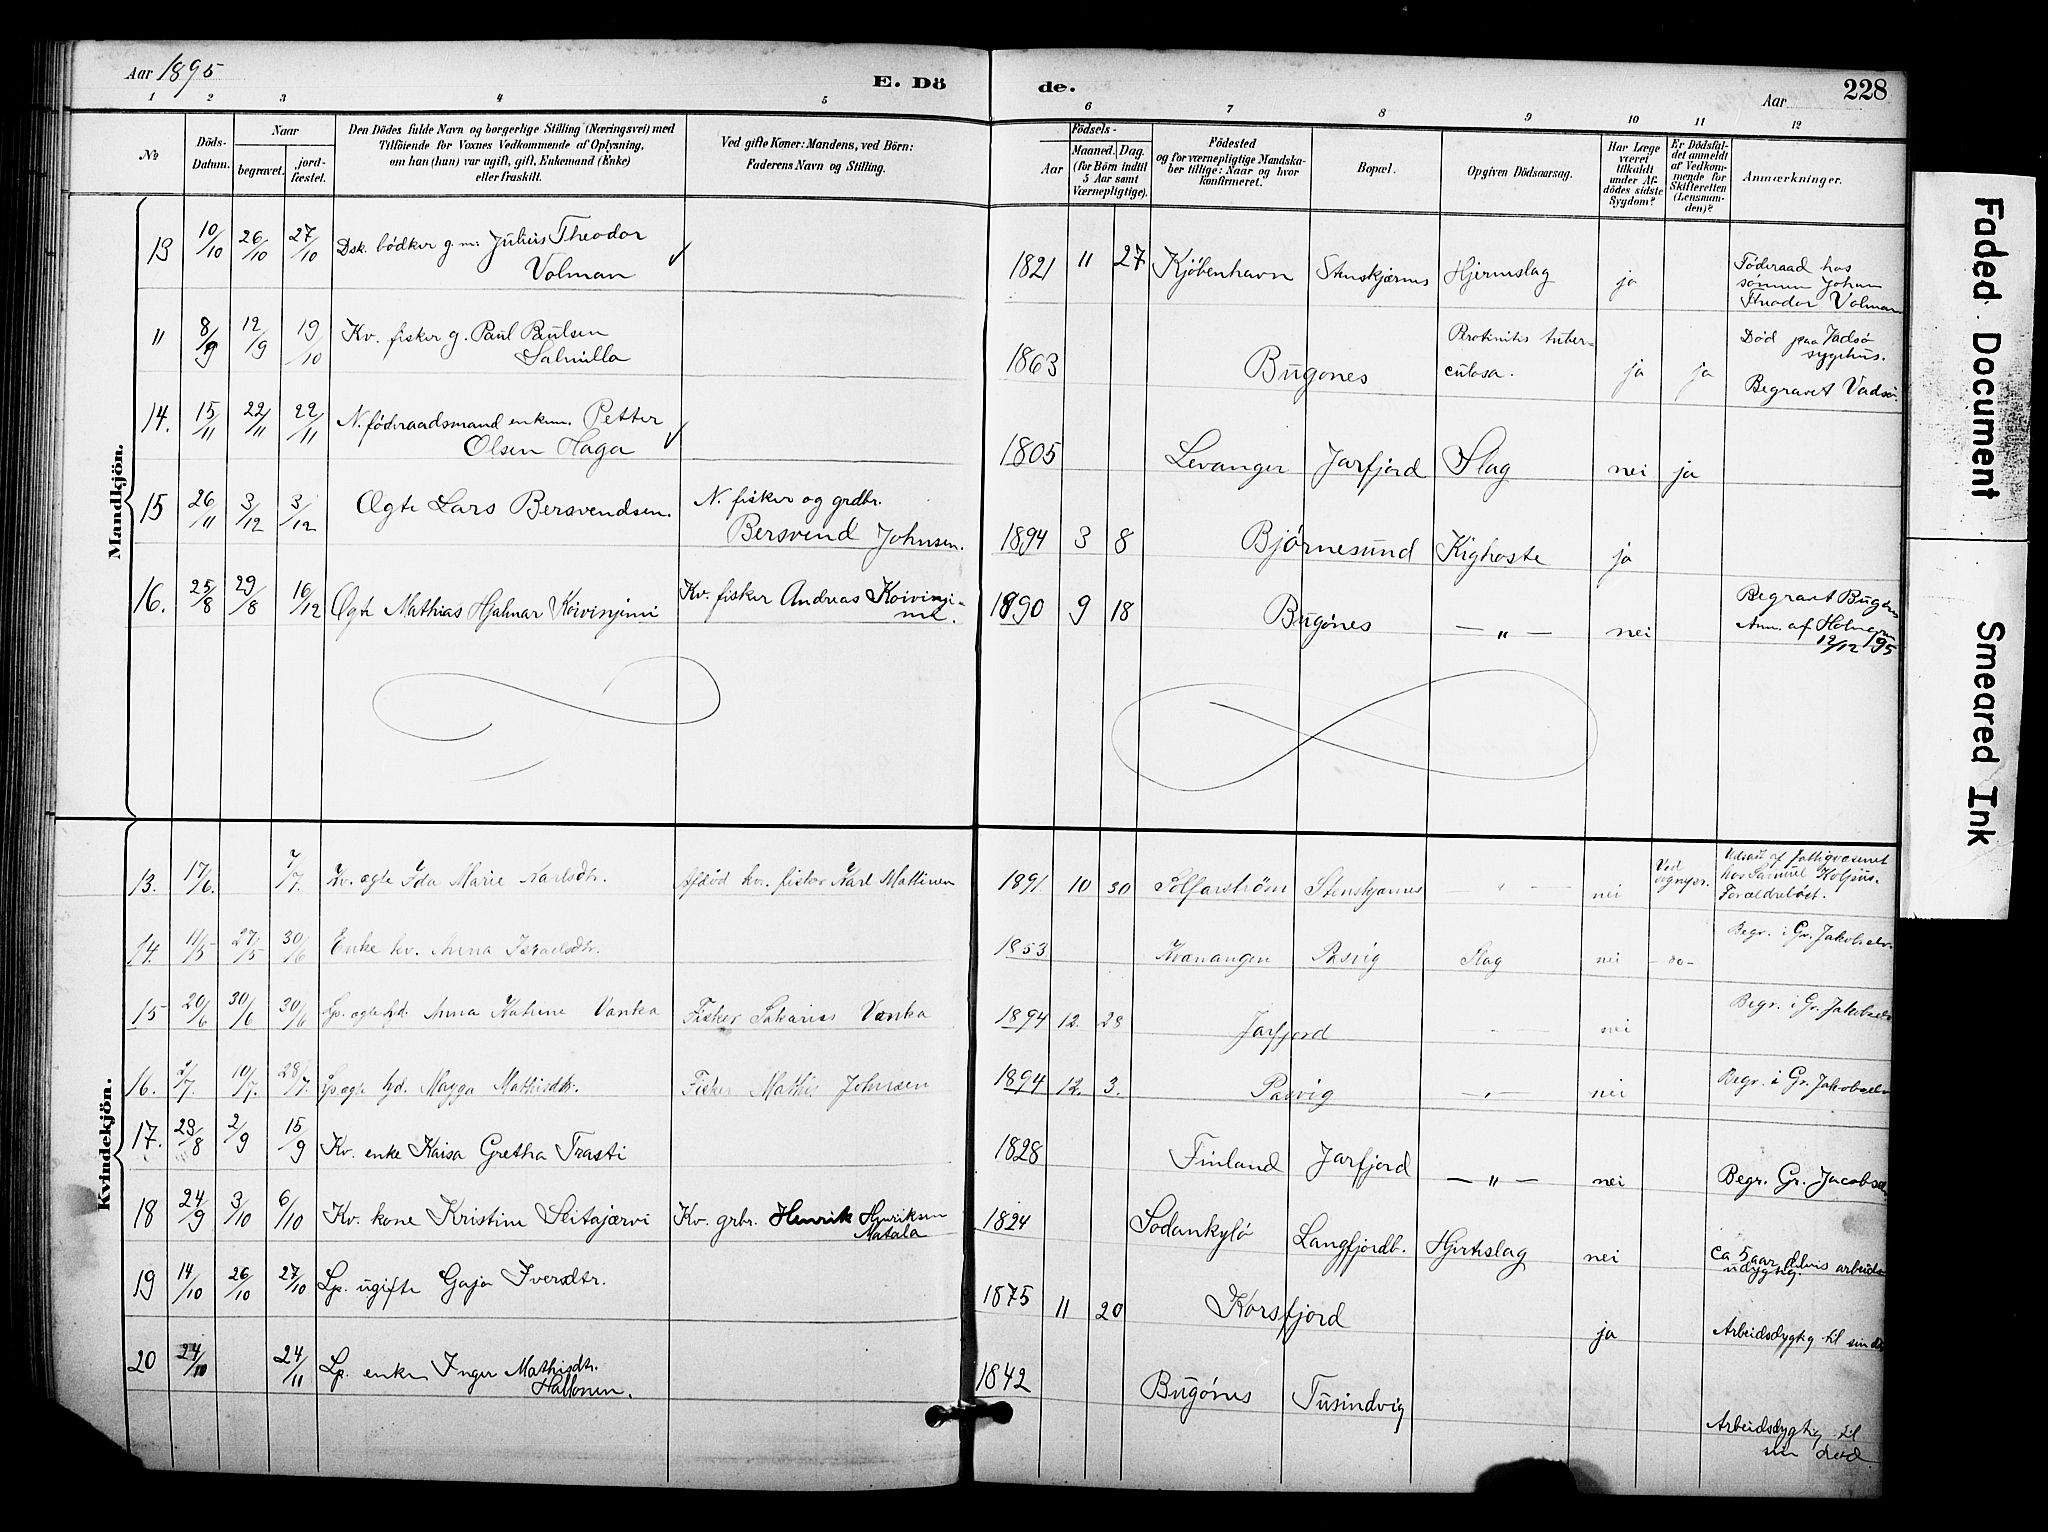 Aar 1895
E. Dö
de.
Aar
228
1 2 3 4 5 6 7 8 9 10 11 12
No
Döds-
Datum.
Naar
begravet.
jord-
fæstet.
Den Dödes fulde Navn og borgerlige Stilling (Næringsvei) med
Tilföiende for Voxnes Vedkommende af Oplysning,
om han (hun) var ugift, gift, Enkemand (Enke)
eller fraskilt.
Ved gifte Koner: Mandens, ved Börn:
Faderens Navn og Stilling.
Födsels-
Aar
Maaned. Dag.
(for Börn indtil
5 Aar samt
Værnepligtige).
Födested
og for værnepligtige Mandska-
ber tillige: Naar og hvor
konfirmeret.
Bopæl.
Opgiven Dödsaarsag.
Har Læge
været
tilkaldt
under Af-
dödes sidste
Sygdom?
Er Dödsfal-
det anmeldt
af Vedkom-
mende for
Skifteretten
(Lensman-
den)?
Anmærkninger.
Mandkjön.
13 10/10 26/10 27/10 Dsk. bödker g. m. Julius Theodor
Volman ✓
1821 11 27 Kjöbenhavn Stenskjærnes Hjernslag ja
Föderaad hos
sönnen Johan
Theodor Volman
" 8/9 12/9 19/10 Kv. fisker g. Paul Paulsen
Salmilla
1863 Bugönes Peritinites tuber-
culosa. ja ja
Död paa Vadsö
sygehus.
Begravet Vadsö.
14. 15/11 22/11 22/11 N. föderaadsmand enkem. Petter
Olsen Haga ✓
1805 Levanger Jarfjord Slag nei ja
15 26/11 3/12 3/12 Ægte Lars Bersvendsen. N. fisker og grdbr.
Bersvend Johnsen.
1894 3 8 Björnesund Kighoste ja
16. 25/8 29/8 16/12 Ægte Mathias Hjalmar Koivinjimi Kv. fisker Andreas Koivinji-
mi.
1890 9 18 Bugönes — " — nei
Begravet Bugönes
Anm. af Holmgren
12/12 95
Kvindekjön.
13. 17/6. 7/7. Kv. ægte Ida Marie Karlsdtr. Afdöd kv. fisker Karl Mattinen
1891. 10 30 Solfarström Stenskjærnes — " — nei Ved
sognepr.
Udsat af Fattigvæsenet
hos Samuel
Forældrelöst.
14. 11/5 27/5 30/6 Enke kv. Anna Israelsdtr.
1853 Kvænangen Pasvig Slag nei - do -
Begr. i Gr. Jakobselv.
15 20/6 30/6 30/6 Lp. ægte fd. Anna Katrine Vanka Fisker Sakarias Vanka
1894 12. 28 Jarfjord — " — nei
Begr. i Gr. Jakobselv
16. 2/7. 10/7. 28/7 Lp. ægte fd. Magga Mathisdtr. Fisker Mathis Johnsen
1894 12. 3. Pasvig — " — nei
Begr. i Gr. Jakobselv
17. 23/8 2/9 15/9 Kv. enke Kaisa Gretha Trasti
1828 Finland Jarfjord — " — nei
Begr. Gr. Jacobselv
18 24/9 3/10 6/10 Kv. kone Kristine Seitajærvi Kv. grbr. Henrik Henriksen
Matala
1824 Sodankylö Langfjordb. Hjerteslag nei
Ca 5 aar delvis arbeids-
udygtig.
19 14/10 26/10 27/10 Lp. ugifte Gaja Iversdtr.
1875 11 20 Korsfjord ja
Arbeidsdygtig til sin död
20 24/10 24/11 Lp. enken Inger Mathisdtr.
Hallonen.
1842 Bugönes Tusindvig
Arbeidsdygtig til
sin död.
Faded Document
Smeared Ink